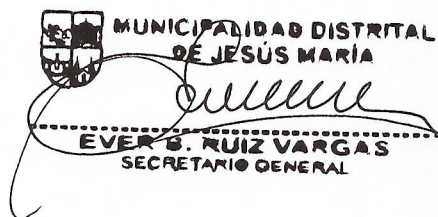 MUNICIPALIDAD DISTRITAL
DE JESÚS MARÍA
EVER B. RUIZ VARGAS
SECRETARIO GENERAL